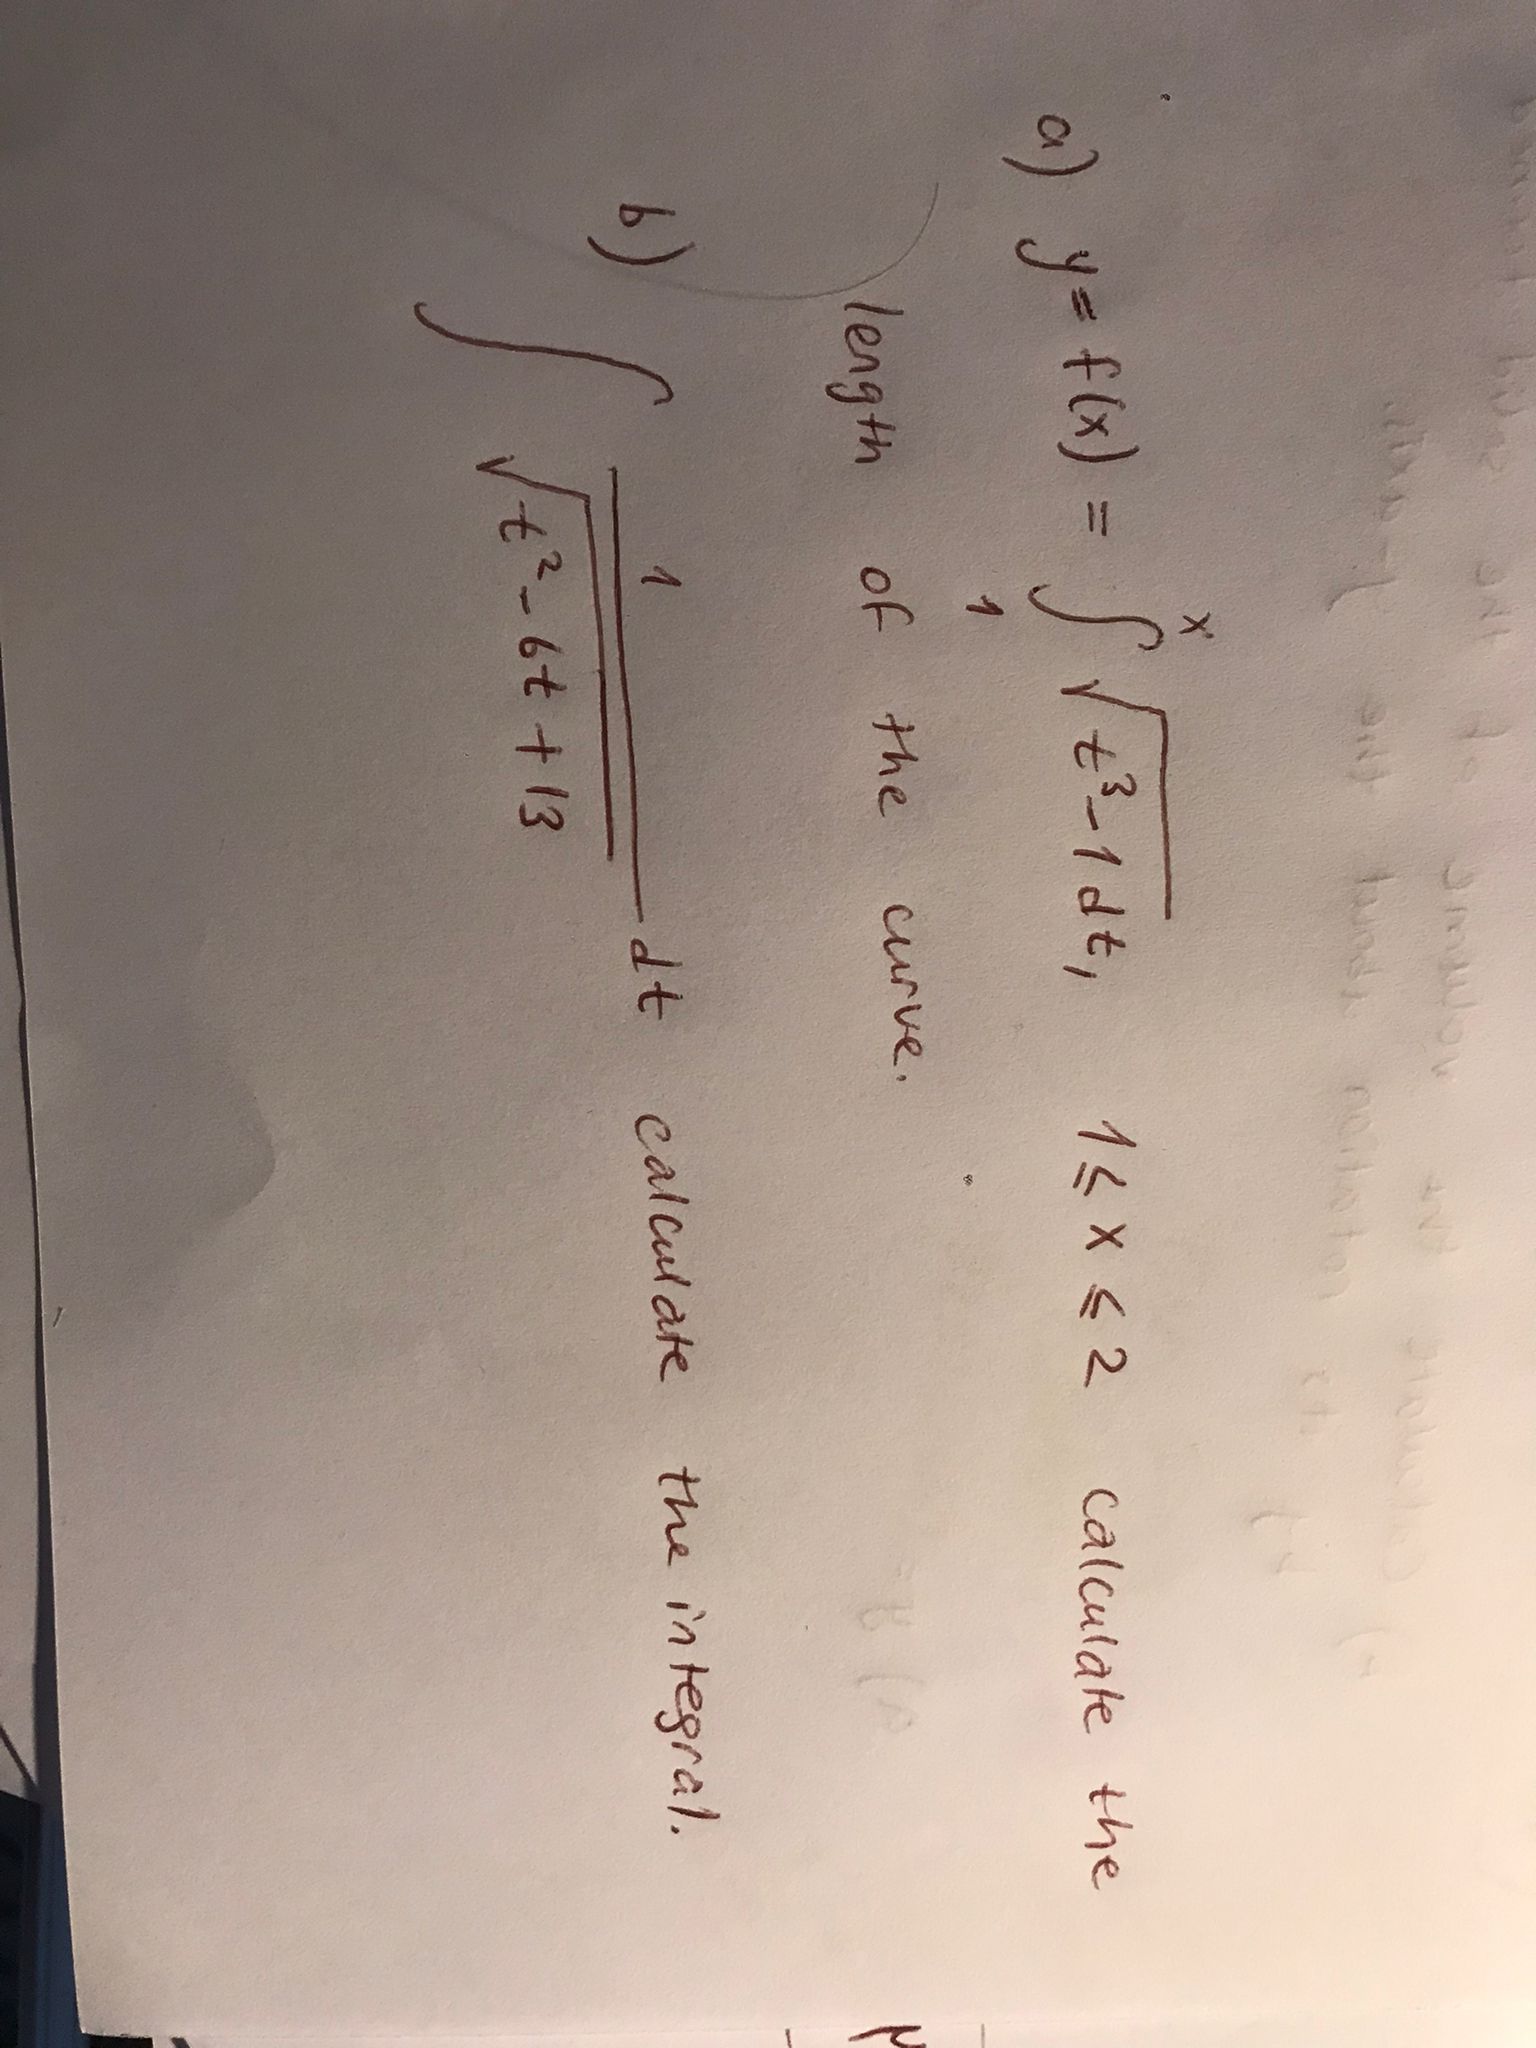 a) y = f(x) = ∫₁ˣ √(t³-1) dt, 1 ≤ x ≤ 2 calculate the
length of the curve.
b) ∫ 1/√(t²-6t+13) dt calculate the integral.